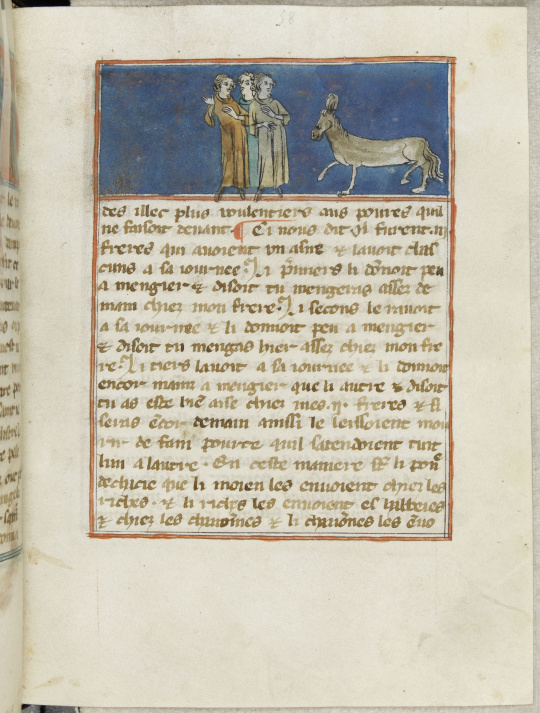 58
des illec plus voulentiers aus poures quil
ne faisoit deuant. ¶ Ci nous dit q̃l furent .iij.
freres qui auoient un asne ⁊ lauoit chas
cuns a sa iournee. Li p̃miers li dõnoit peu
a mengier ⁊ disoit tu mengeras assez de
main chiez mon frere. Li secons le rauoit
a sa iournee ⁊ li donnoit peu a mengier
⁊ disoit tu mengas hier assez chiez mon fre
re. Li tiers lauoit a sa iournee ⁊ li donnoit
encor mains a mengier que li autre ⁊ disoit
tu as este biẽ aise chiez mes .ij. freres ⁊ si
seras ẽcor demain ainssi le leissoient mou
rir de fain pource quil satendoient tuit
lun a lautre. En ceste maniere st̃ li pou᷑
dechicie que li moien les enuoient chiez les
riches. ⁊ li riches les enuoient es
⁊ chiez les chanoĩnes ⁊ li chanoĩnes les ẽuo